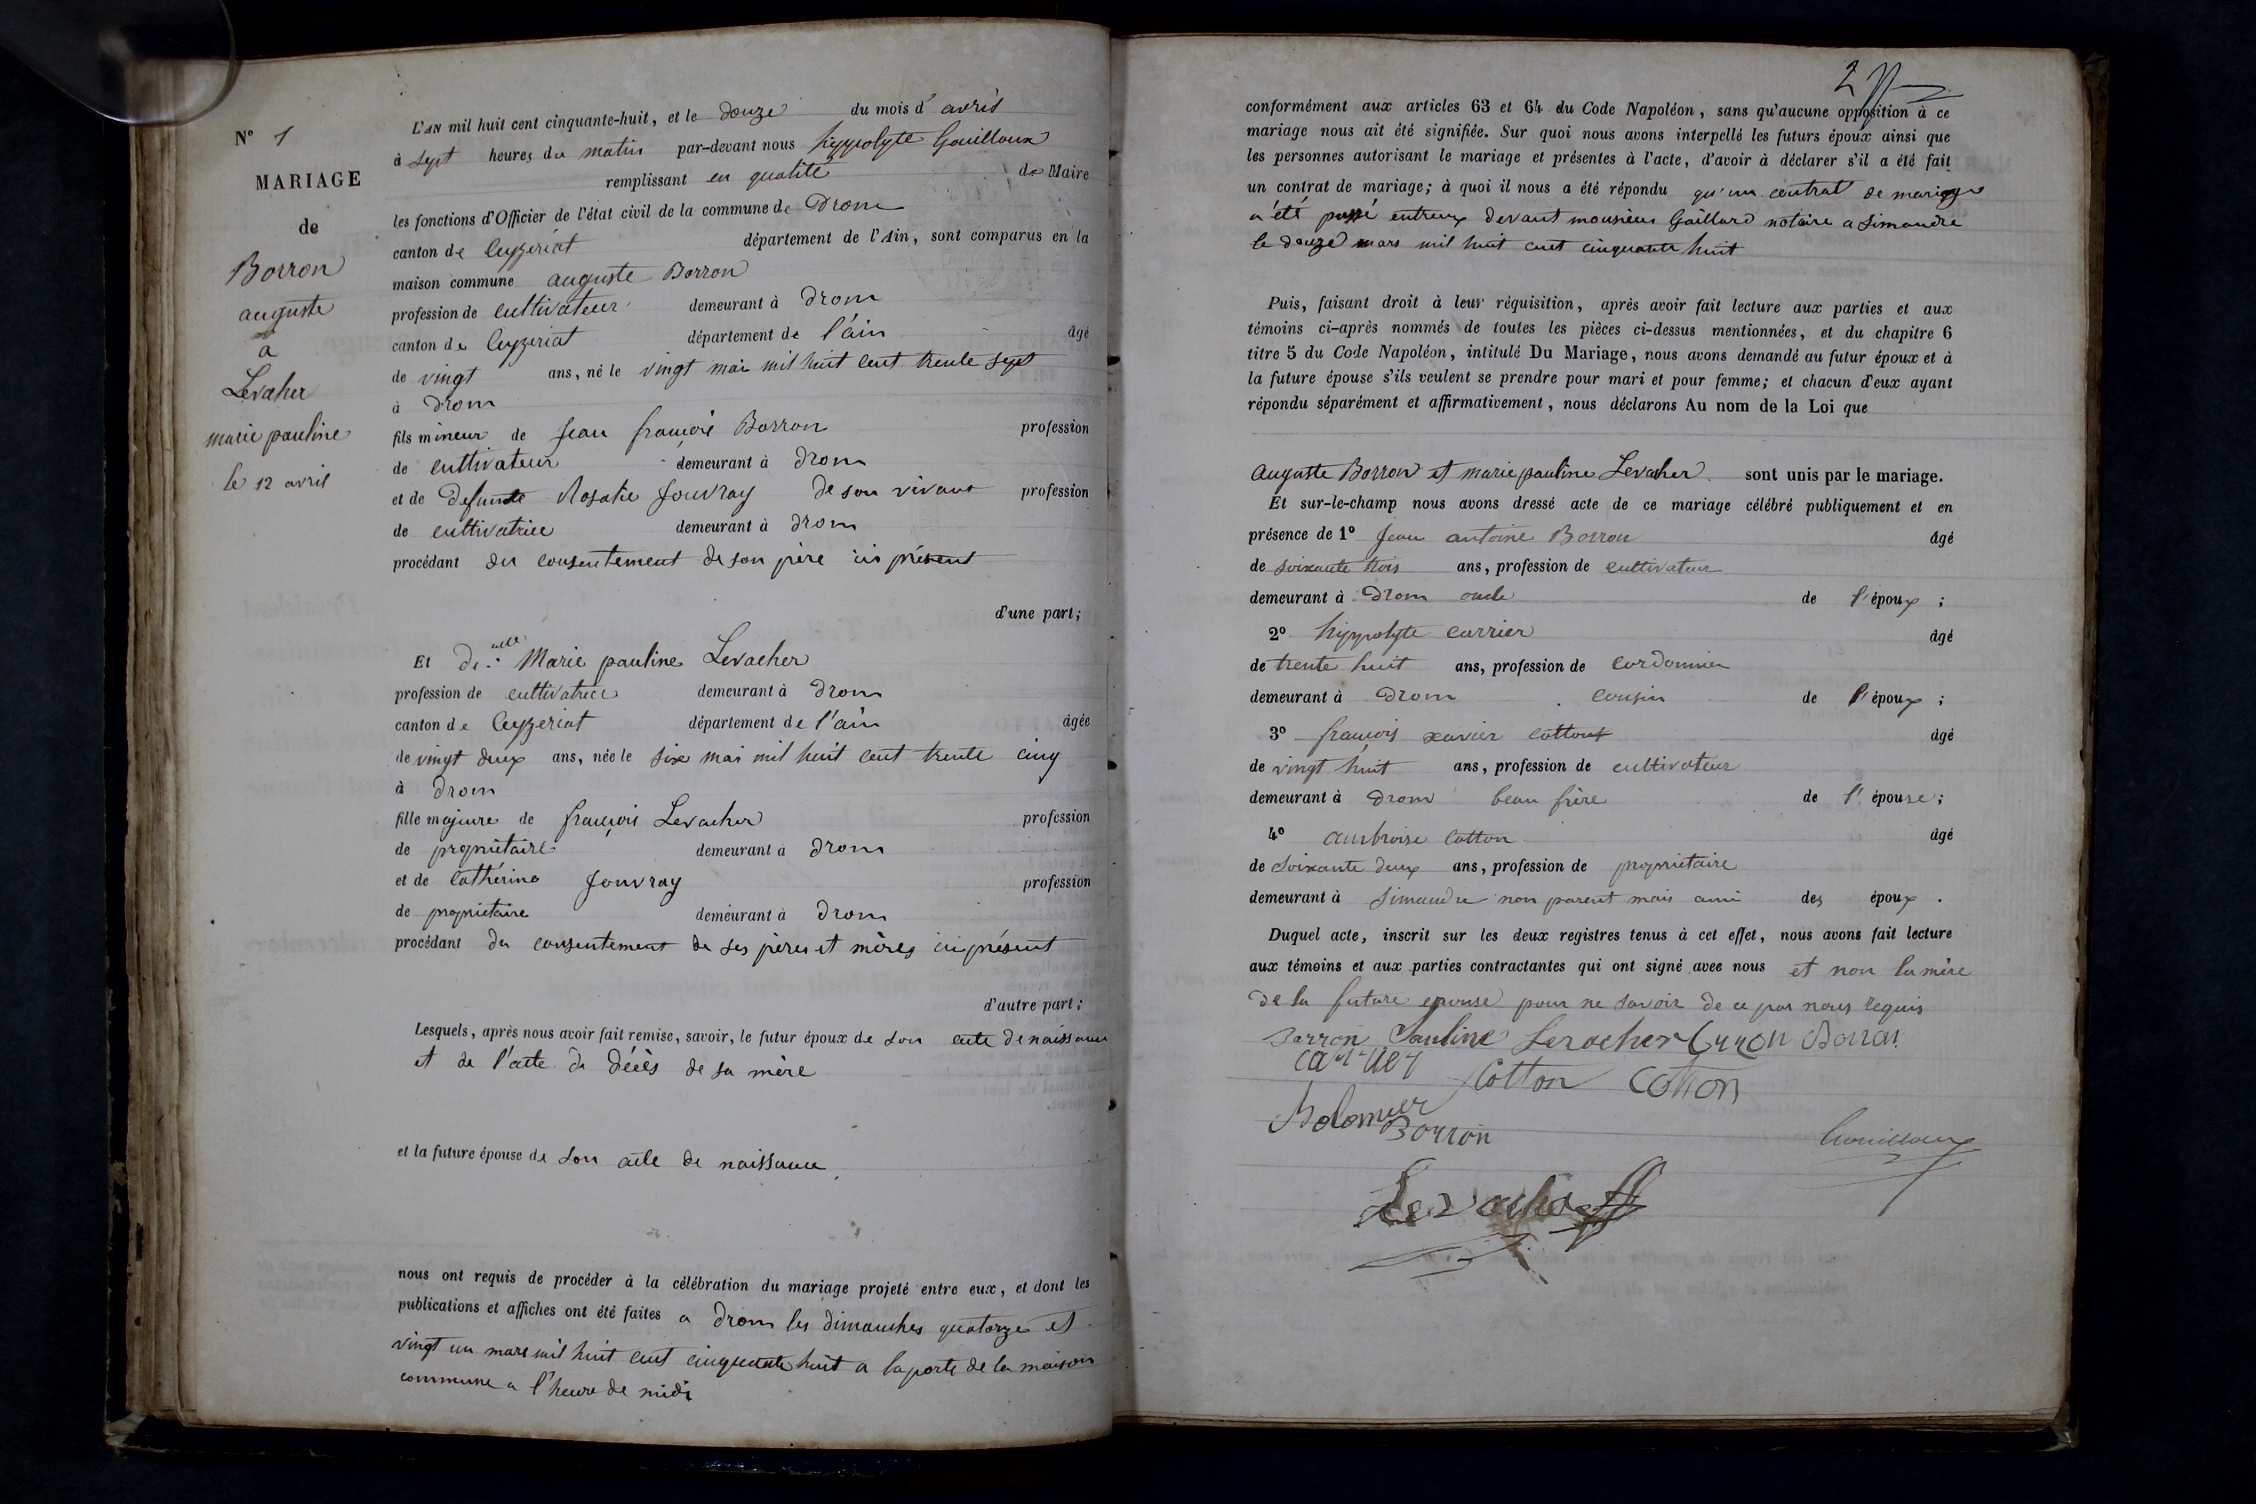 N° 1
MARIAGE
de
Borron
auguste
a
Levaher
marie pauline
le 12 avril
L'AN mil huit cent cinquante-huit, et le douze du mois d' avril
à sept heures du matin par-devant nous hyppolyte Gouilloux
remplissant en qualité de Maire
les fonctions d'Officier de l'état civil de la commune de Drom
canton de Ceyzeriat département de l'Ain, sont comparus en la
maison commune auguste Borron
profession de cultivateur demeurant à Drom
canton de Ceyzeriat département de l'ain âgé
de vingt ans, né le vingt mai mil huit cent trente sept
à Drom
fils mineur de Jean françois Borron profession
de cultivateur demeurant à Drom
et de Defunte Rosalie Jouvray de son vivant profession
de cultivatrice demeurant à Drom
procédant du consentement de son père ici présent
d'une part;
Et de elle Marie pauline Levacher
profession de cultivatrice demeurant à Drom
canton de Ceyzeriat département de l'ain âgée
de vingt deux ans, née le six mai mil huit cent trente cinq
à Drom
fille majeure de françois Levacher profession
de propriétaire demeurant à Drom
et de Cathérine Jouvray profession
de propriétaire demeurant à Drom
procédant du consentement de ses pères et mères ici présent
d'autre part;
Lesquels, après nous avoir fait remise, savoir, le futur époux de son acte de naissance
et de l'acte de décès de sa mère
et la future épouse de son acte de naissance
nous ont requis de procéder à la célébration du mariage projeté entre eux, et dont les
publications et affiches ont été faites a Drom les dimanches quatorze et
vingt un mars mil huit cent cinquante huit a la porte de la maison
commune a l'heure de midi
2
conformément aux articles 63 et 64 du Code Napoléon, sans qu'aucune opposition à ce
mariage nous ait été signifiée. Sur quoi nous avons interpellé les futurs époux ainsi que
les personnes autorisant le mariage et présentes à l'acte, d'avoir à déclarer s'il a été fait
un contrat de mariage; à quoi il nous a été répondu qu'un contrat de mariage
a été passé entreux devant monsieur Gaillard notaire a Simandre
le douze mars mil huit cent cinquante huit
Puis, faisant droit à leur réquisition, après avoir fait lecture aux parties et aux
témoins ci-après nommés de toutes les pièces ci-dessus mentionnées, et du chapitre 6
titre 5 du Code Napoléon, intitulé Du Mariage, nous avons demandé au futur époux et à
la future épouse s'ils veulent se prendre pour mari et pour femme; et chacun d'eux ayant
répondu séparément et affirmativement, nous déclarons Au nom de la Loi que
Auguste Borron et marie pauline Levacher sont unis par le mariage.
Et sur-le-champ nous avons dressé acte de ce mariage célébré publiquement et en
présence de 1° Jean antoine Borron âgé
de soixante trois ans, profession de cultivateur
demeurant à Drom oncle de l'époux ;
2° hyppolyte currier âgé
de trente huit ans, profession de cordonnier
demeurant à Drom cousin de l'époux ;
3° françois xavier cotton âgé
de vingt huit ans, profession de cultivateur
demeurant à Drom beau frère de l'épouse ;
4° ambroise Cotton âgé
de soixante deux ans, profession de propriétaire
demeurant à Simandre non parent mais ami des époux .
Duquel acte, inscrit sur les deux registres tenus à cet effet, nous avons fait lecture
aux témoins et aux parties contractantes qui ont signé avec nous et non la mère
de la future epouse pour ne savoir de ce par nous requis
Borron Pauline Levacher Borron
Cotton Cotton
Bolomier
Borron Gouilloux
Levacher